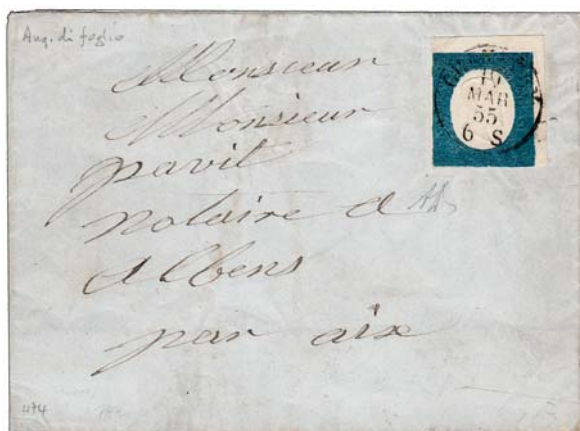 Ang. di foglio
Monsieur
Monsieur
pavit
notaire a
albens
par aix
19
MAR
55
6 S
474